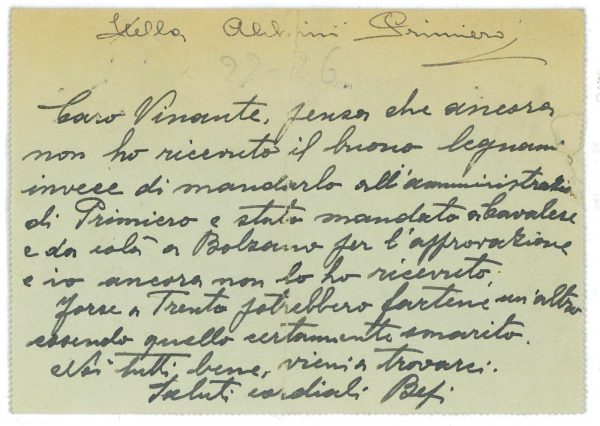 Stella Alpini Primiero
22-26
Caro Vinante, pensa che ancora
non ho ricevuto il buono legnami
invece di mandarlo all'amministrazio
di Primiero e stato mandato a Cavalese
e da colà a Bolzano per l'approvazione
e io ancora non lo ho ricevuto.
Forse a Trento potrebbero fartene un'altro
essendo quello certamente smarito.
Noi tutti bene, vieni a trovarci.
Saluti cordiali Bepi